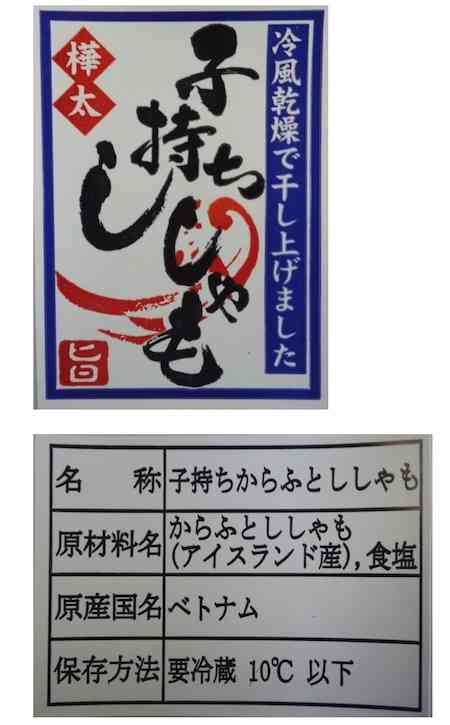 冷風乾燥で干し上げました
樺太
子持ち
ししゃも
旨
名 称 子持ちからふとししゃも
原材料名 からふとししゃも
(アイスランド産),食塩
原産国名 ベトナム
保存方法 要冷蔵 10℃ 以下